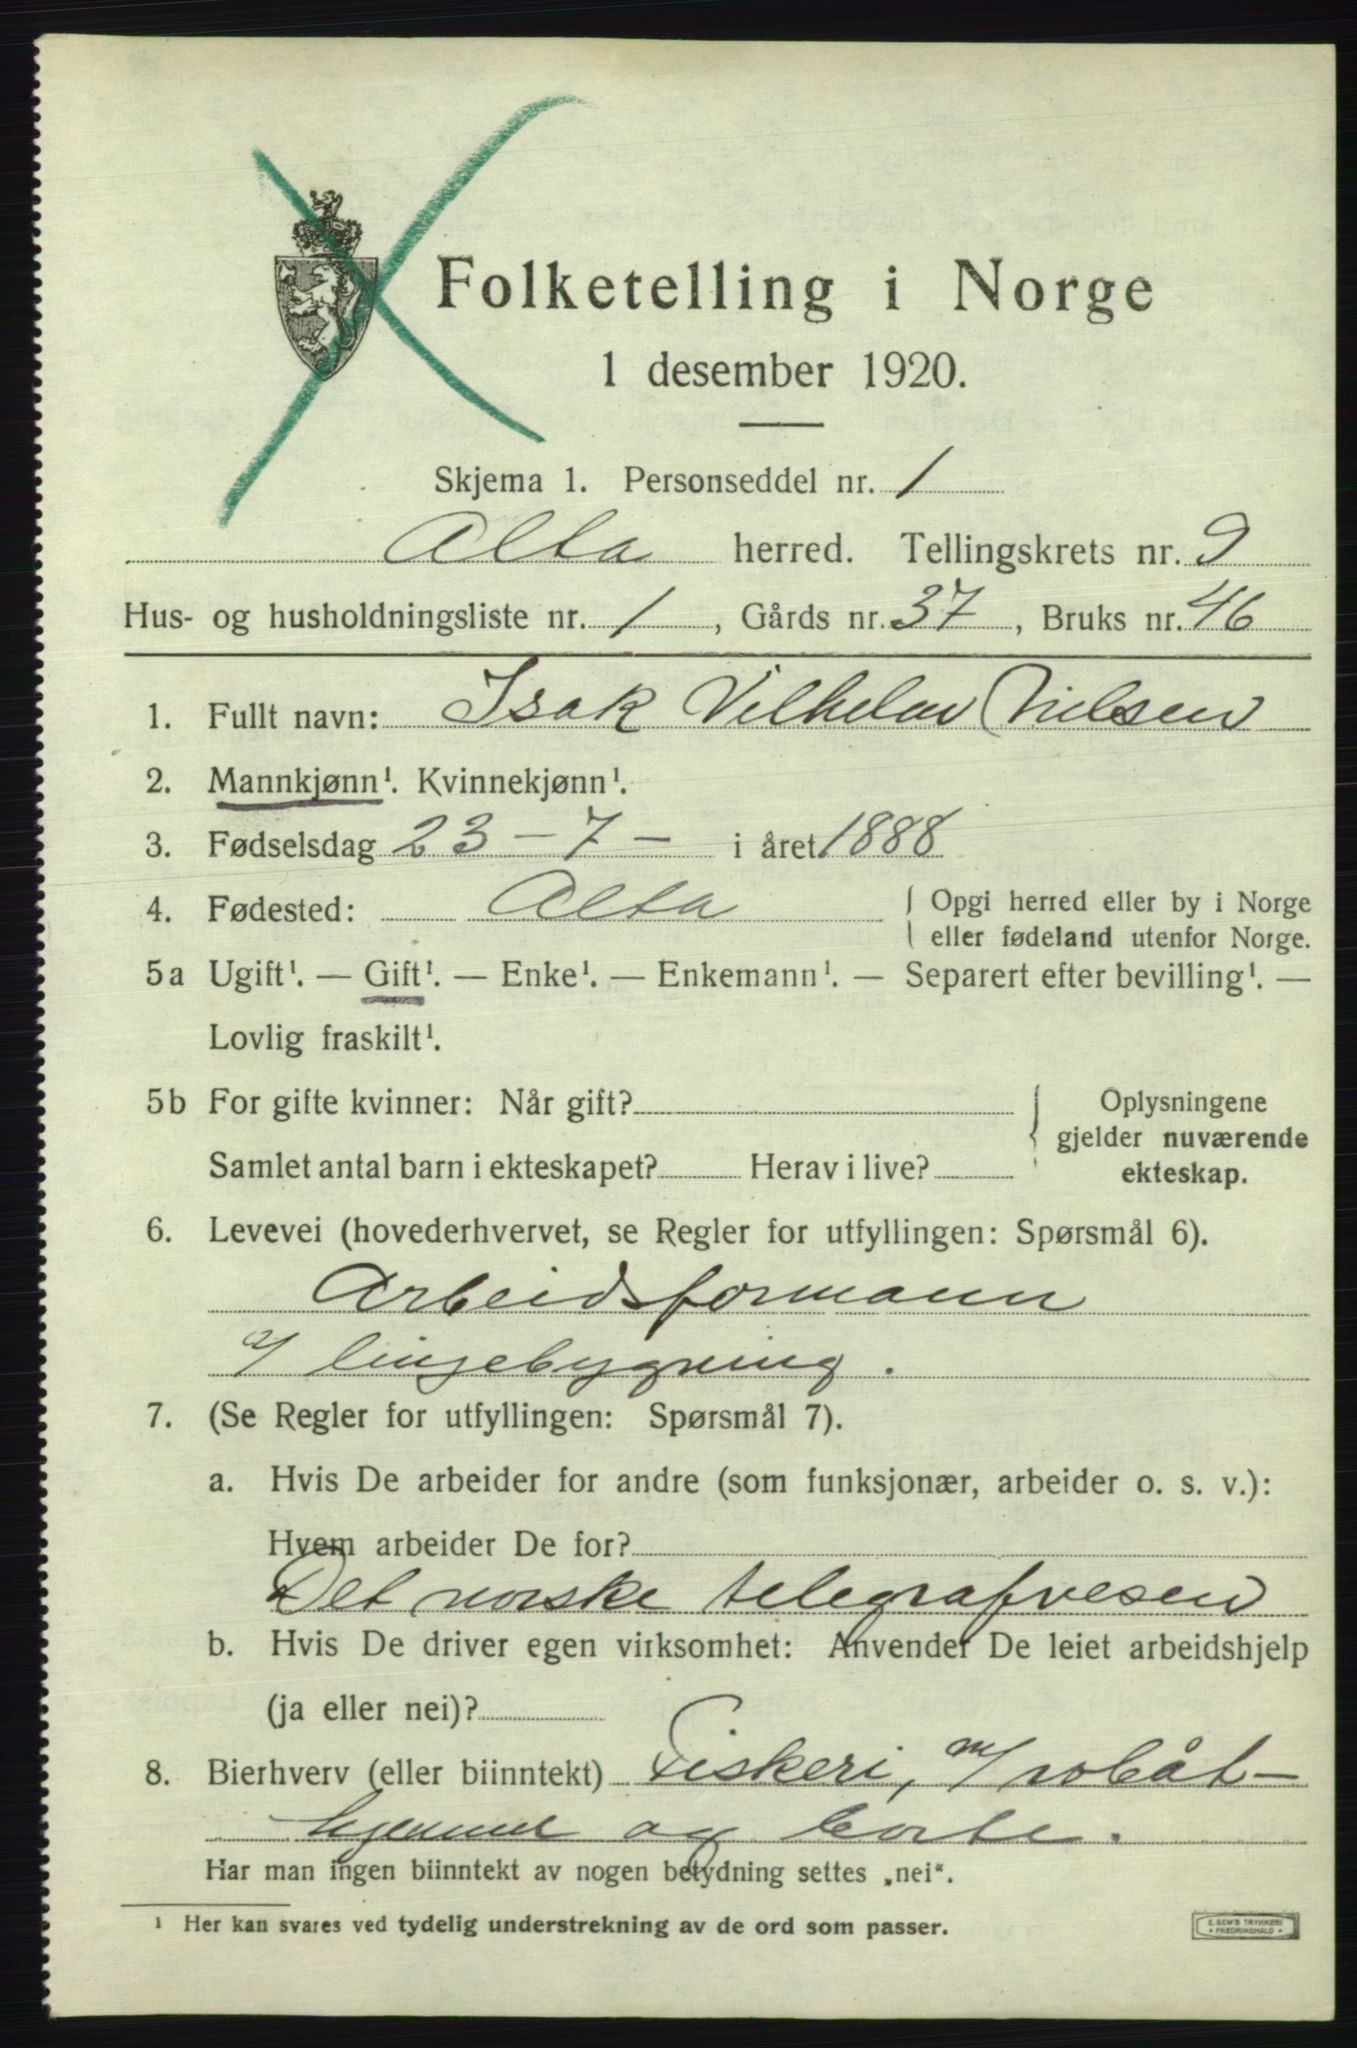 Folketelling i Norge
1 desember 1920.
Skjema 1. Personseddel nr. 1
Alta herred. Tellingskrets nr. 9
Hus- og husholdningsliste nr. 1, Gårds nr. 37, Bruks nr. 46
1. Fullt navn: Isak Vilhelm Nielsen
2. Mannkjønn¹. Kvinnekjønn¹.
3. Fødselsdag 23 - 7 - i året 1888
4. Fødested: Alta { Opgi herred eller by i Norge
eller fødeland utenfor Norge.
5a Ugift¹. — Gift¹. — Enke¹. — Enkemann¹. — Separert efter bevilling¹. —
Lovlig fraskilt¹.
5b For gifte kvinner: Når gift? { Oplysningene
gjelder nuværende
Samlet antal barn i ekteskapet? Herav i live? ekteskap.
6. Levevei (hovederhvervet, se Regler for utfyllingen: Spørsmål 6).
Arbeidsformann
v/ linjebygning.
7. (Se Regler for utfyllingen: Spørsmål 7).
a. Hvis De arbeider for andre (som funksjonær, arbeider o. s. v.):
Hvem arbeider De for?
Det norske telegrafvesen
b. Hvis De driver egen virksomhet: Anvender De leiet arbeidshjelp
(ja eller nei)?
8. Bierhverv (eller biinntekt) Fiskeri, m/robåt -
hjemme og borte.
Har man ingen biinntekt av nogen betydning settes „nei“.
¹ Her kan svares ved tydelig understrekning av de ord som passer.
E. SEM'S TRYKKERI
• FREDRIKSHALD •